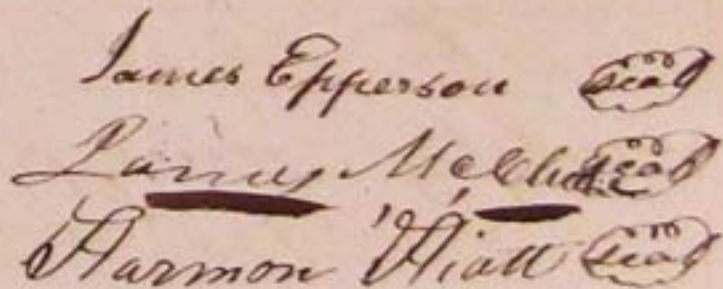 James Epperson seal
James seal
Harmon Hiatt seal